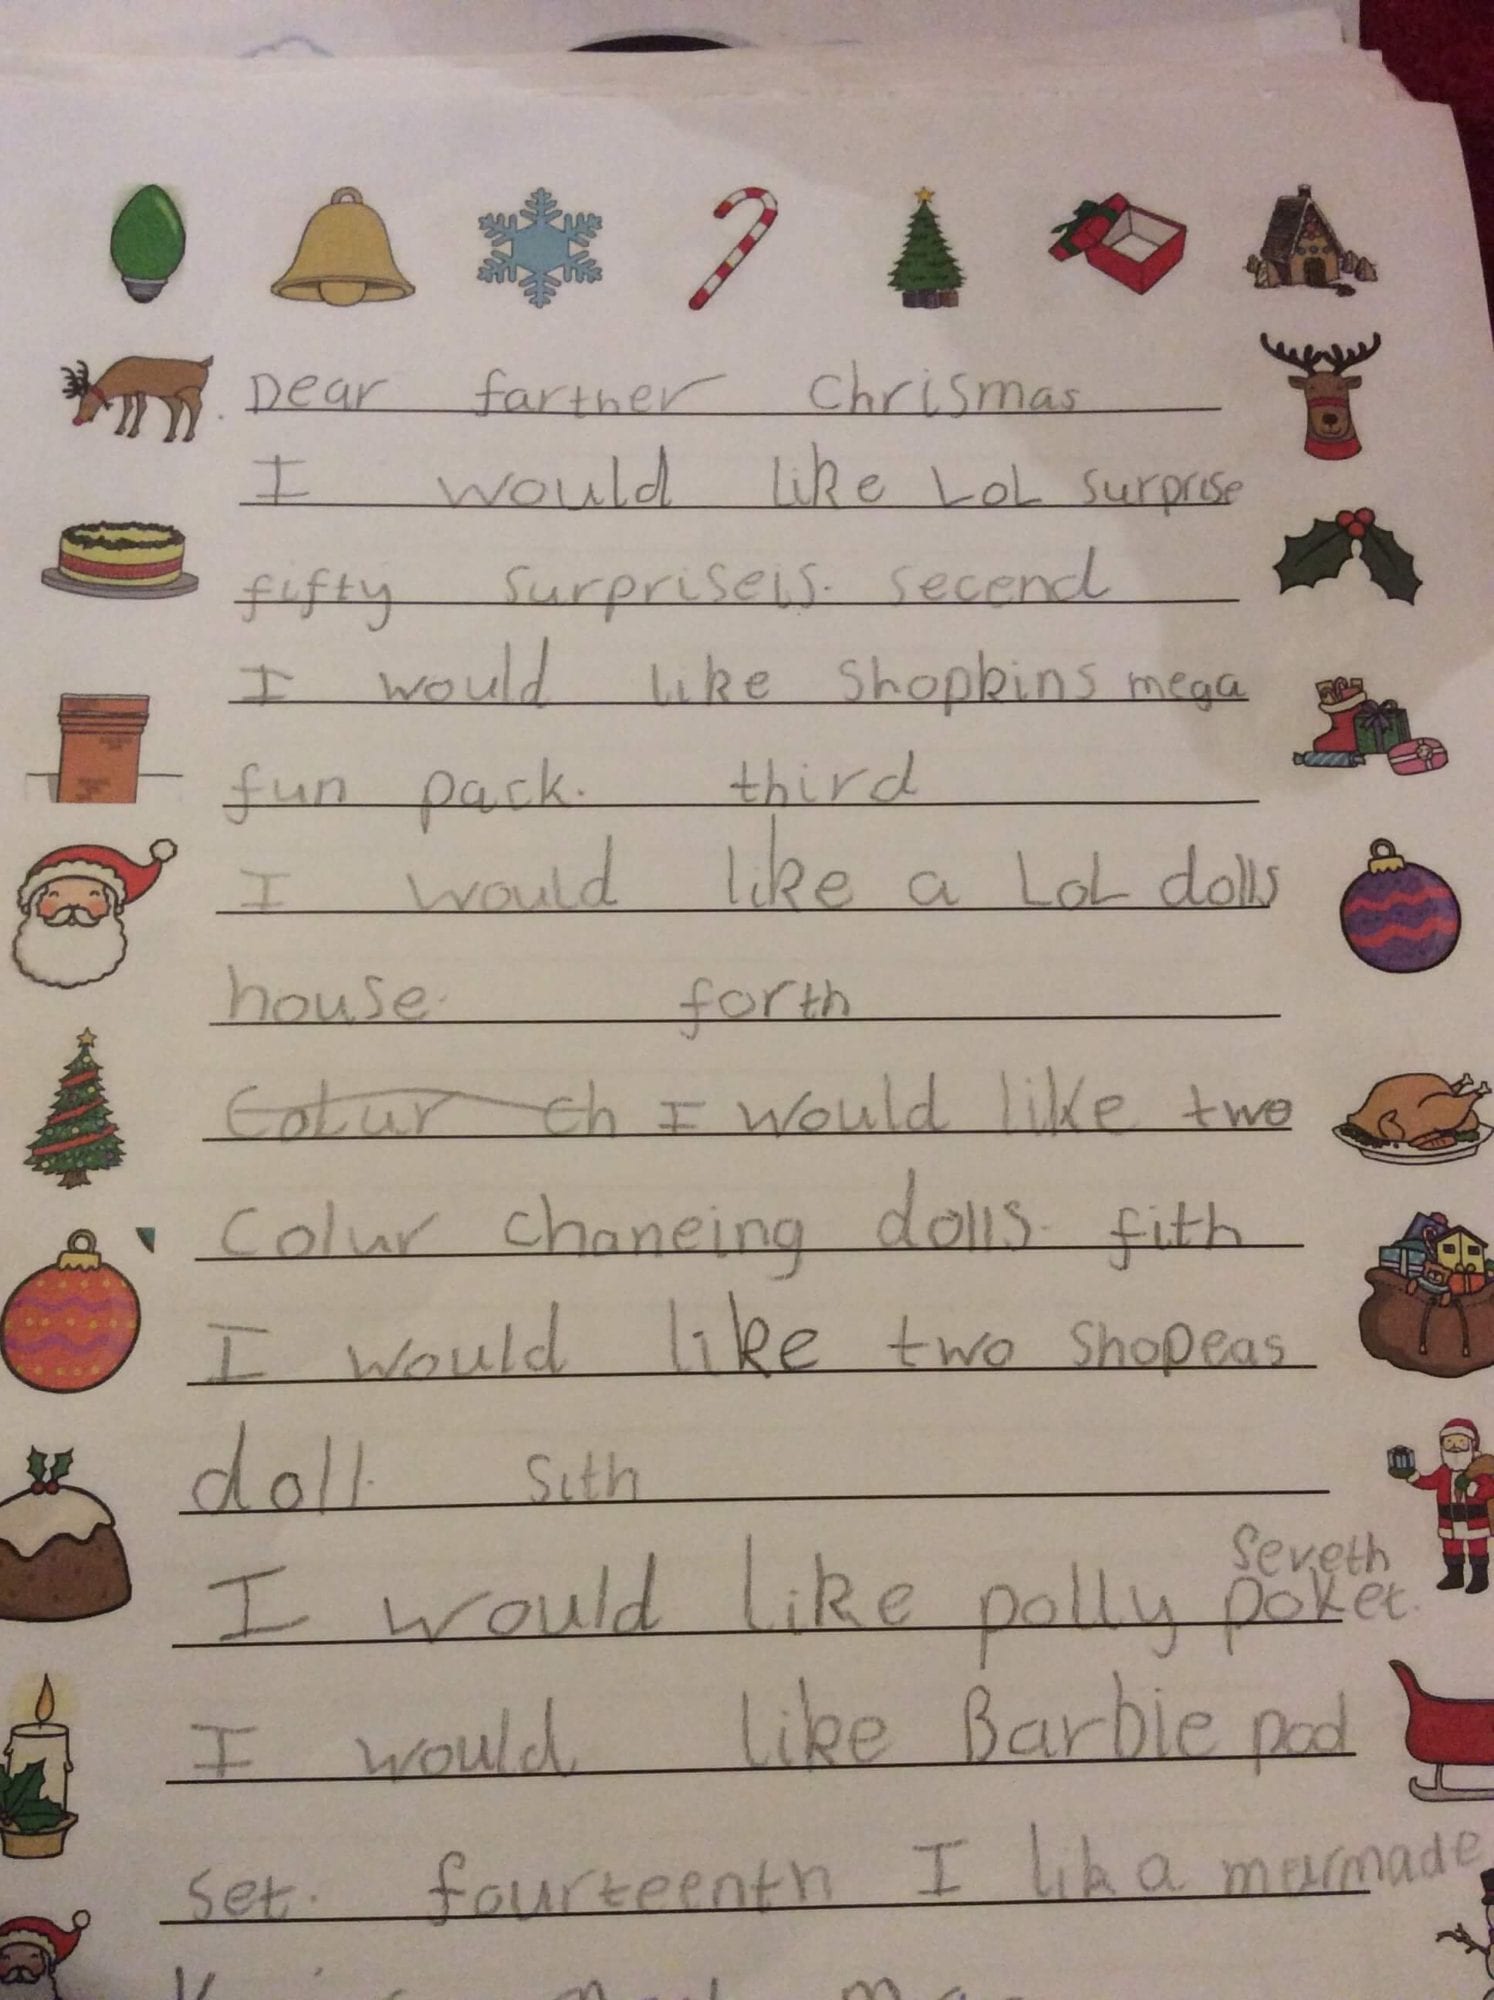 Dear farther Chrismas
I would like LOL surprise
fifty surpriseis. secend
I would like Shopkins mega
fun pack. third
I would like a LOL dolls
house. forth
Colur ch I would like two
Colur chaneing dolls. fith
I would like two Shopeas
doll. sith
seveth
I would like polly poket.
I would like Barbie pod
set. fourteenth I lik a mermade